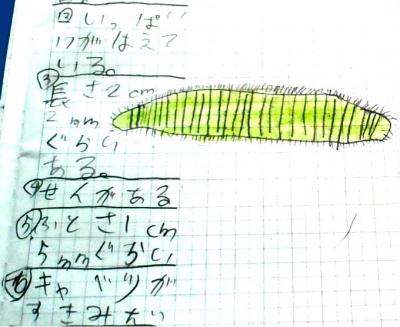 ②いっぱい
けがはえて
いる。
③長さ2cm
2mm
ぐらい
ある。
④せんがある
⑤ふとさ1cm
5mmぐらい
⑥キャベツが
すきみたい